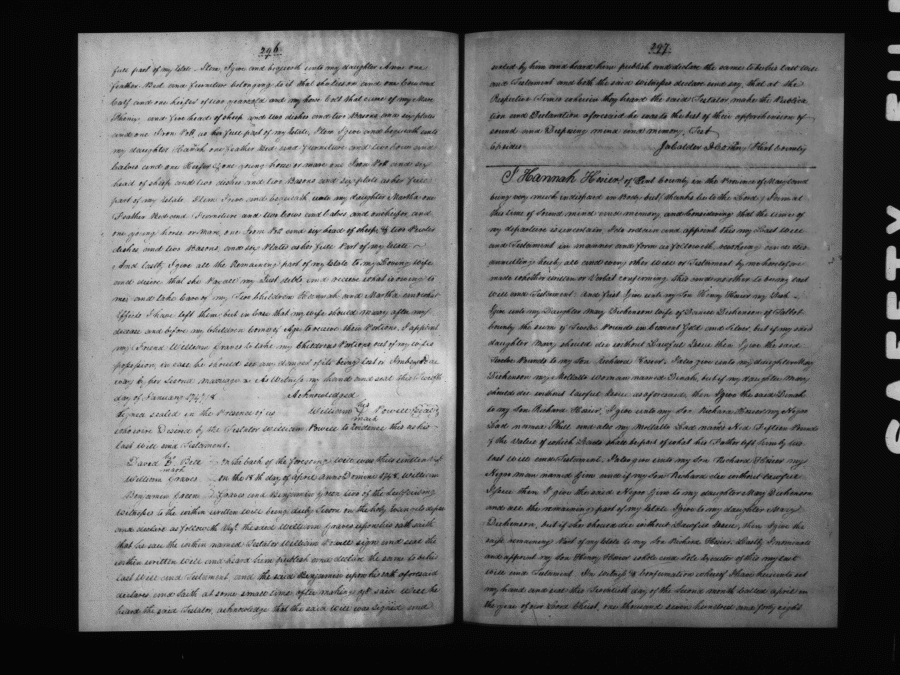 296
full part of my Estate. Item, I give and bequeath unto my daughter Anne one
feather Bed and furniture belonging to it that she lies on and one Cow and
Calf and one heifer of two years old and my horse Colt that came of my Mare
and five head of sheep and two dishes and two Basons and six plates
and one Iron Pott, as her full part of my Estate, Item I give and bequeath unto
my daughter Hannah one Feather Bed and Furniture and two Cows and
Calves and one Heifer & one young horse or mare one Iron Pott and six
head of sheep and two dishes and two Basons and six plates as her full
part of my Estate. Item I give and bequeath unto my daughter Martha one
Feather Bed and Furniture and two Cows and Calves and one heifer and
one young horse or Mare, one Iron Pot and six head of sheep, & two Pewter
dishes and two Basons, and six Plates as her full Part of my Estate
And lastly I give all the Remaining part of my Estate to my Loving Wife
and desire that she Pay all my Just debts and receive what is owing to
me and take Care of my Two Children Hannah and Martha and what
Effects I have left them, but in Case that my wife should marry after my
decease and before my Children comes of Age to receive their Potions, I appoint
my Friend William Graves to take my Childrens Potions out of my wifes
possession, in case he should see any danger of its being Lost or Imbezled
by her Second marriage. As Witness my hand and seal this Twelfth
day of January 1747/8. Acknowledged
Signed sealed in the Presence of us William his mark Powell (seal)
who were Desired by the Testator William Powell to Evidence this as his
Last Will and Testament.
David his mark Bell On the back of the foregoing Will was thus written
William Graves on the 18th day of April Anno Domini 1748, William
Benjamin Green Graves and Benjamin Green two of the subscribing
Witnesses to the within written Will being duly Sworn on the holy Evangels depose
and declare as followeth Viz. the said William Graves upon his oath saith
that he saw the within named Testator William Powell sign and seal the
within written Will and heard him publish and declare the same to be his
Last Will and Testament and the said Benjamin upon his oath aforesaid
declares and saith at some small time after making of said Will, he
heard the said Testator, acknowledge that the said Will was signed and
297
sealed by him and heard him publish and declare the same to be his Last Will
and Testament and both the said Witnesses declare and say, that at the
Respective Times wherein they heard the said Testator make the Publica
tion and Declaration aforesaid he was to the best of their apprehension of
sound and Disposing mind and memory, Test
Kent County
I Hannah of Kent County in the Province of Maryland
being very much indisposed in Body but thanks be to the Lord I am at
this time of Sound mind and memory, and Considering that the time of
my departure is uncertain I do ordain and appoint this my Last Will
and Testament in manner and form as followeth, revoking and dis
annulling hereby all and every other Will or Testament by me heretofore
made whether written or Verbal confirming this and no other to be my Last
Will and Testament. And First I give unto my Son Henry
I give unto my Daughter Mary Dickenson wife of Dickenson of Talbot
County the sum of Twelve Pounds in Current Gold and Silver, but if my said
daughter Mary should die without Lawful Issue then I give the said
Twelve Pounds to my Son Richard I also give unto my daughter Mary
Dickenson my Mollatto Woman named Dinah, but if my daughter Mary
should die without Lawful Issue as aforesaid, then I give the said Dinah
to my Son Richard I give unto my Son Richard my Negro
Lad named Phill and also my Mollatto Lad named Ned Fifteen Pounds
of the Value of which Lads shall be part of what his Father left him by his
Last Will and Testament. I also give unto my Son Richard my
Negro man named Jim and if my Son Richard die without Lawful
Issue then I give the said Negro Jim to my daughter Mary Dickenson
and all the remaining part of my Estate I give to my daughter Mary
Dickenson, but if she should die without Lawful Issue, then I give the
said remaining Part of my Estate to my Son Richard Lastly I nominate
and appoint my Son Henry whole and Sole Executor of this my Last
Will and Testament. In Witness & Confirmation whereof I have hereunto set
my hand and seal this Twentieth day of the Second month Called April in
the year of our Lord Christ, one thousand seven hundred and forty eight
SAFETY